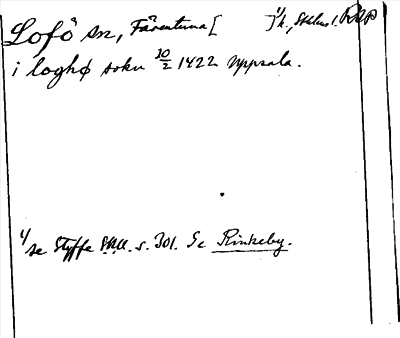 Lofö sn, Färentuna [ ] ¹⁾ h., Sthlms l. RAp
i loghø sokn 20/2 1422 Uppsala.
¹⁾ se Styffe SkU. s. 301. Se Rinkeby.